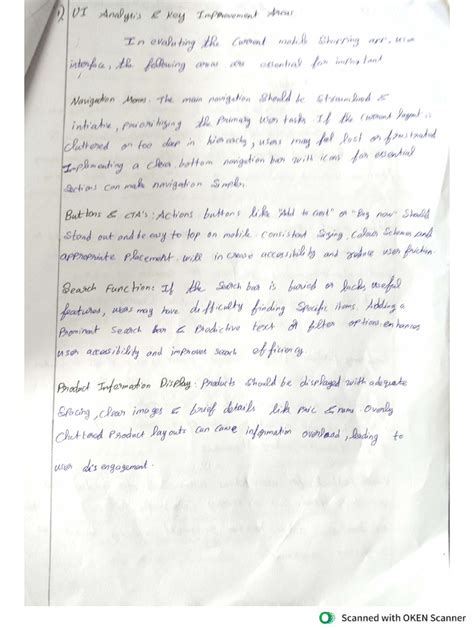 1) UI Analysis & Key Improvement Areas
In evaluating the Current mobile Shopping app, user
interface, the following areas are essential for
Navigation Menus. The main navigation Should be Streamlined &
intiative, prioritizing the Primary User tasks If the current layout is
Cluttered or too deep in hierarchy, users may feel lost or frustrated
Implementing a clear bottom navigation bar with icons for essential
Sections can make navigation Simpler.
Buttons & CTA's: Actions buttons like "Add to cart" or "Buy now" Should
Stand out and be easy to tap on mobile. Consistent Sizing, Colour Schemes, and
appropriate Placement will increase accessibility and reduce user friction.
Search Function: If the Search bar is buried or lacks useful
features, users may have difficulty finding Specific items. Adding a
Prominent Search bar & Predictive text or filter options enhances
user accessibility and improves search efficiency.
Product Information Display: Products Should be displayed with adequate
Spacing, clear images & brief details like price & name. Overly
Cluttered Product layouts can cause information overload, leading to
user disengagement.
Scanned with OKEN Scanner